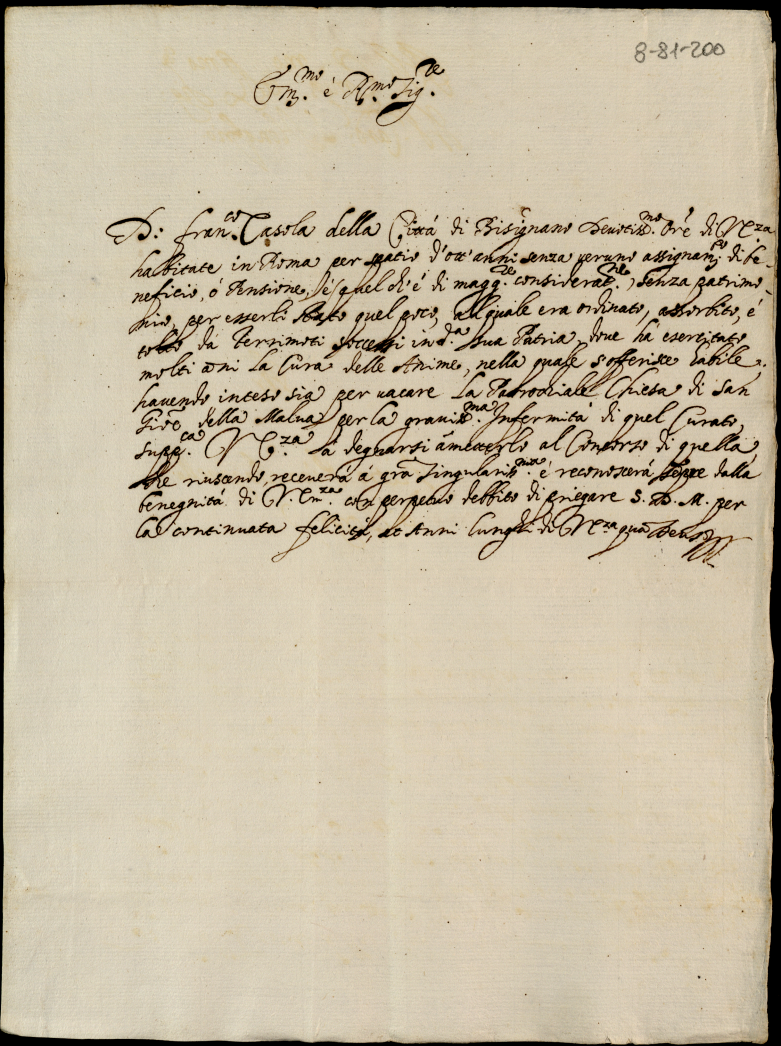 8-81-200
Em.mo è R.mo Sig.re
D: Fran.co Casola della Città di Bisignano Devotiss.mo Ore di V.Em.za
habbitato in Roma per spatio d'ott'anni senza veruno assignam.to di be-
neficio, ò Pensione, (è quel ch'è di magg.re considerat.ne) senza patrimo-
nio, per esserli stato quel poco, al quale era ordinato, assorbito, è
tolto da Terrimoti soccessi in d.a sua Patria, dove hà esercitato
molti anni la Cura delle Anime, nella quale s'offerisce habile.
havendo inteso sia per vacare la Parrochiale Chiesa di San
Gioe della Malva per la graviss.ma Infermità di quel Curato,
supp.ca V.Em.za à degnarsi ametterlo al Concorso di quella,
che riuscendo, receverà à gra singulariss.ma è reconoscerà sempre dalla
benegnità di V.Em.za con perpetuo debbito di priegare S.D.M. per
la continuata felicità, et Anni lunghi di V.Em.za quam Deus